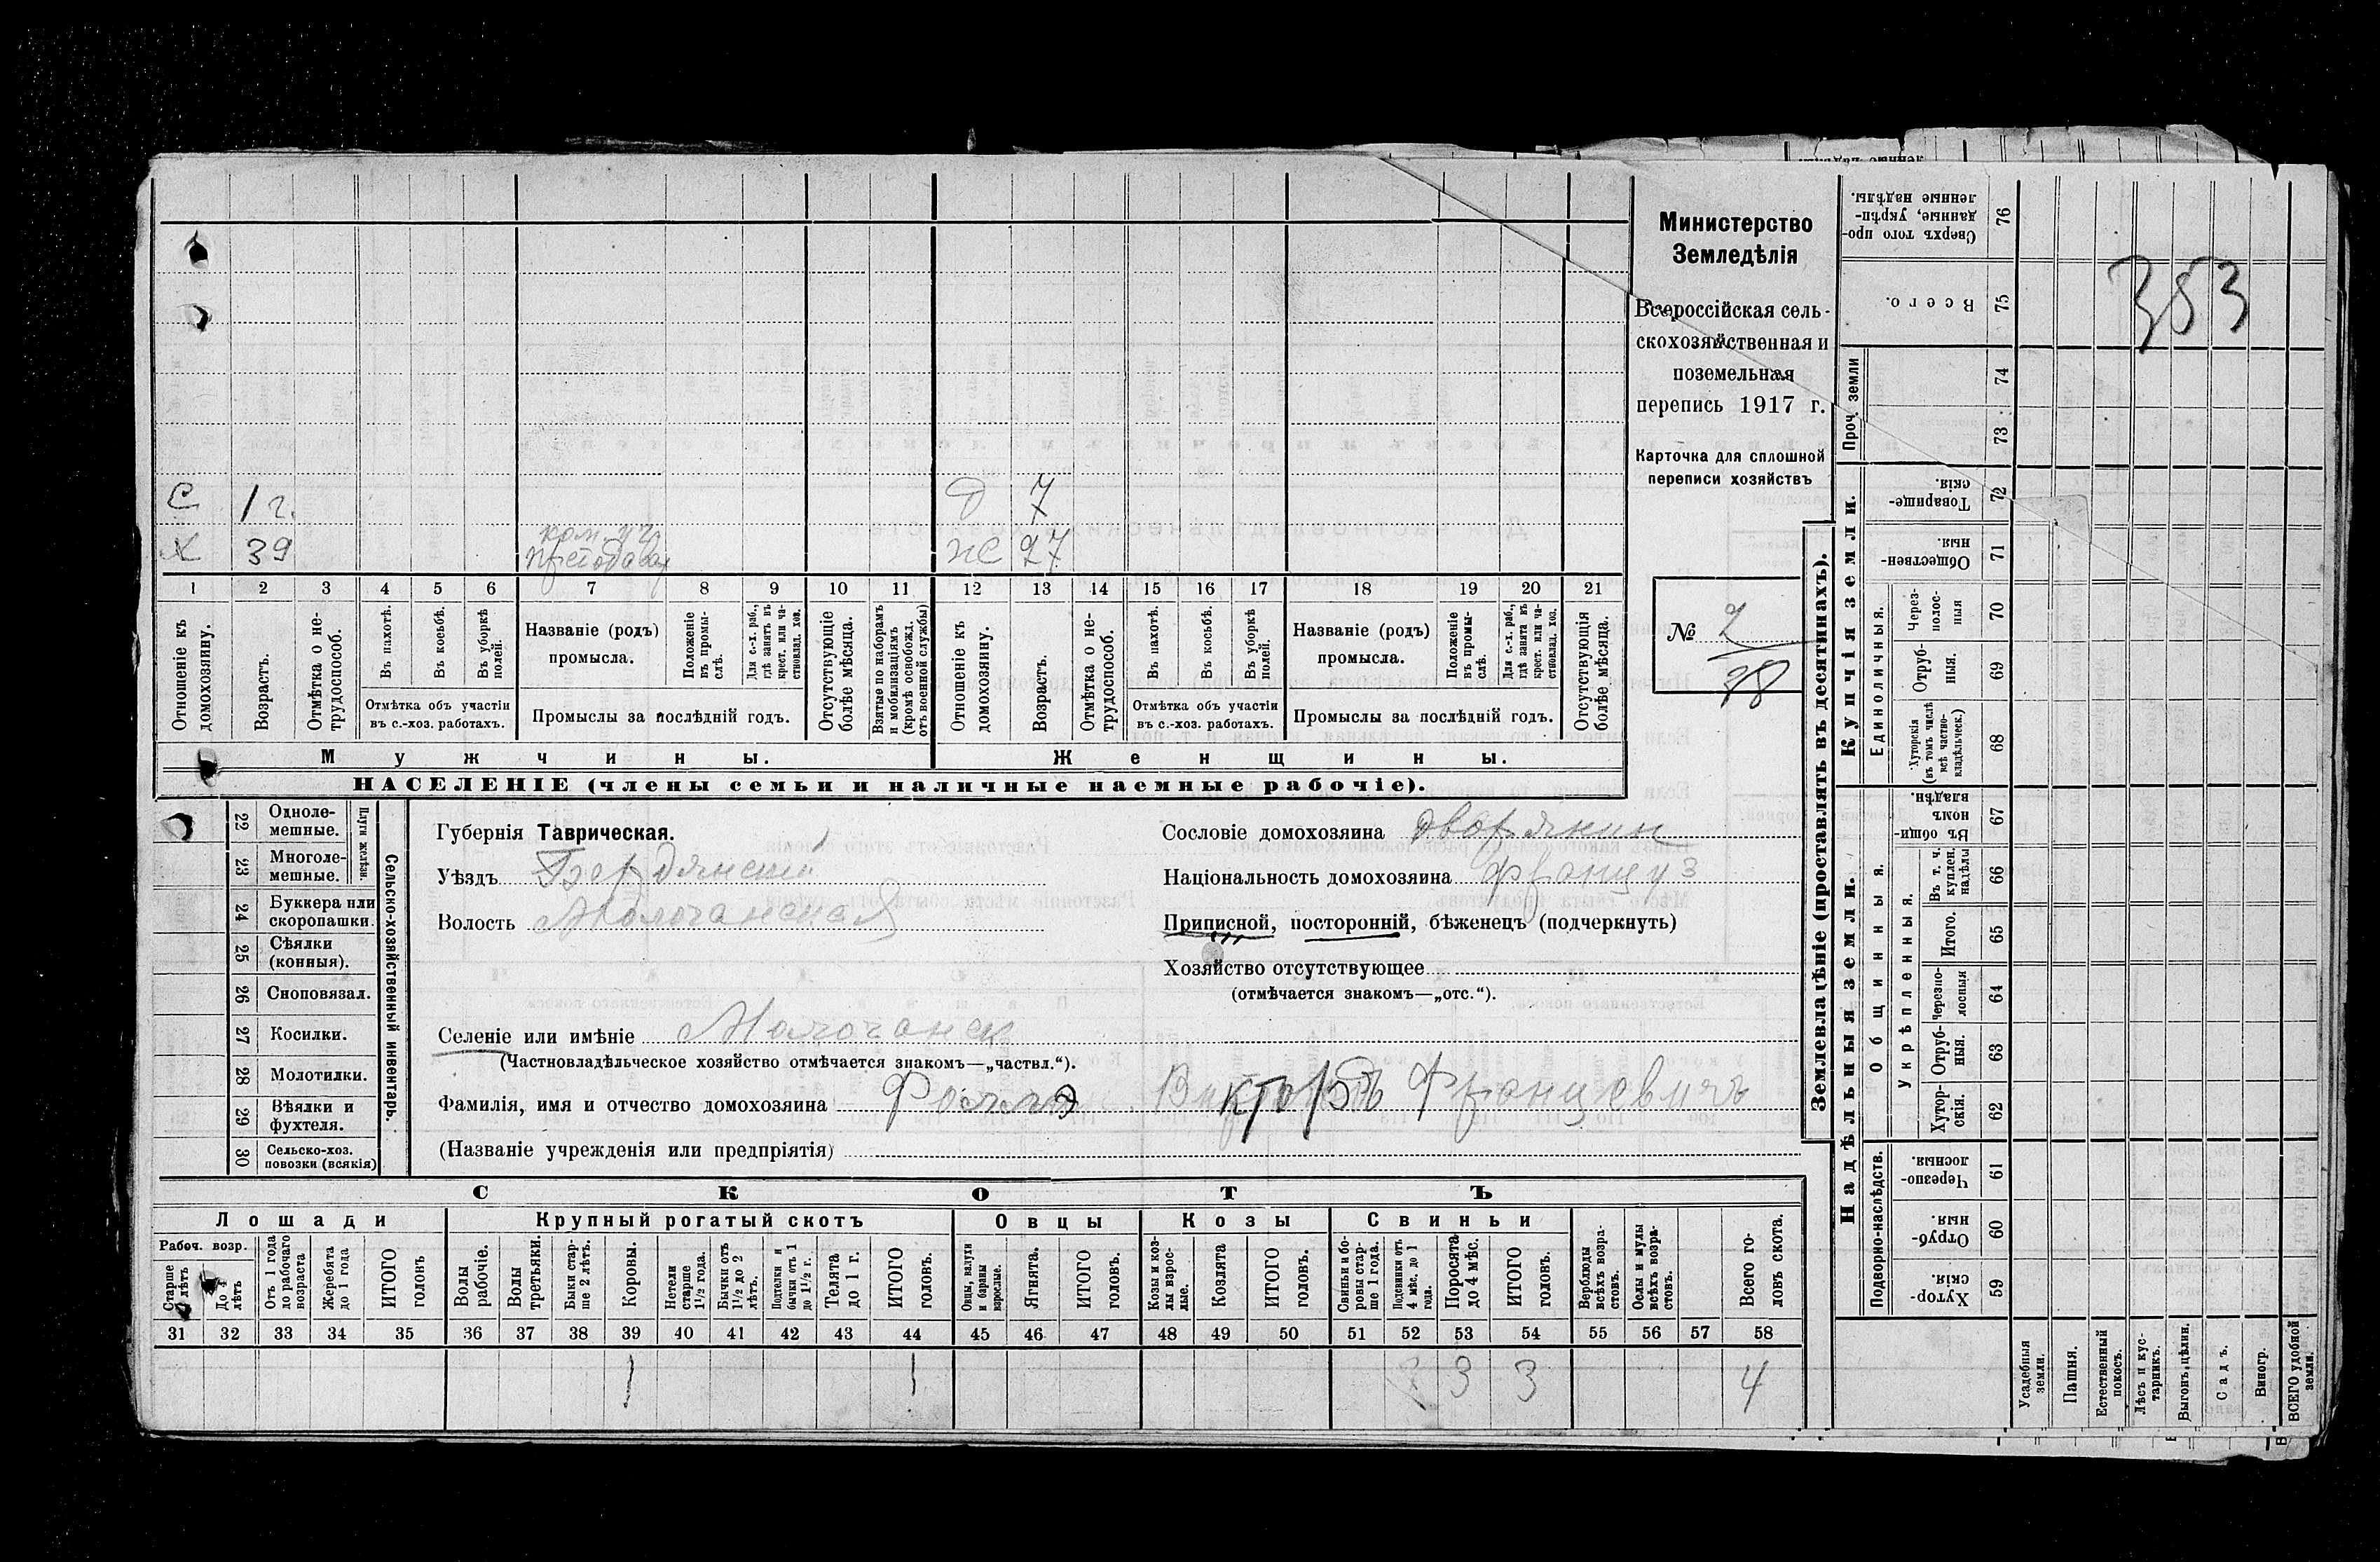 Министерство
Земледѣлія
Всероссійская сель-
скохозяйственная и
поземельная
перепись 1917 г.
Карточка для сплошной
переписи хозяйствъ
№ 2
78
353
С 1 г. Д 7
Х 39 ком. уч. Ж 27
1 2 3 4 5 6 7 8 9 10 11 12 13 14 15 16 17 18 19 20 21
Отношеніе къ домохозяину.
Возрастъ.
Отмѣтка о не-трудоспособ.
Въ пахотѣ.
Въ косьбѣ.
Въ уборкѣ полей.
Отмѣтка объ участіи
въ с.-хоз. работахъ.
Названіе (родъ)
промысла.
Положеніе въ промы-слѣ.
Для с.-х. раб., гдѣ занятъ въ крест. или ча-стновлад. хоз.
Промыслы за послѣдній годъ.
Отсутствующіе болѣе мѣсяца.
Взятые по наборамъ и мобилизаціямъ (кромѣ освобожд. отъ военной службы)
Отношеніе къ домохозяину.
Возрастъ.
Отмѣтка о не-трудоспособ.
Въ пахотѣ.
Въ косьбѣ.
Въ уборкѣ полей.
Отмѣтка объ участіи
въ с.-хоз. работахъ.
Названіе (родъ)
промысла.
Положеніе въ промы-слѣ.
Для с.-х. раб., гдѣ занята въ крест. или ча-стновлад. хоз.
Промыслы за послѣдній годъ.
Отсутствующія болѣе мѣсяца.
Мужчины. Женщины.
НАСЕЛЕНІЕ (члены семьи и наличные наемные рабочіе).
22 Одноле-мешные.
23 Многоле-мешные.
Плуги желѣзн.
24 Буккера или скоропашки.
25 Сѣялки (конныя).
26 Сноповязал.
27 Косилки.
28 Молотилки.
29 Вѣялки и фухтеля.
30 Сельско-хоз. повозки (всякія)
Сельско-хозяйственный инвентарь.
Губернія Таврическая.
Уѣздъ Бердянскій
Волость Молочанская
Сословіе домохозяина дворянин
Національность домохозяина француз
Приписной, посторонній, бѣженецъ (подчеркнуть)
Хозяйство отсутствующее
(отмѣчается знакомъ—„отс.“).
Селеніе или имѣніе Молочанск
(Частновладѣльческое хозяйство отмѣчается знакомъ—„частвл.“).
Фамилія, имя и отчество домохозяина Викторъ Францевичъ
(Названіе учрежденія или предпріятія)
СКОТЪ
Лошади Крупный рогатый скотъ Овцы Козы Свиньи
Рабоч. возр.
Старше 4 лѣтъ
До 4 лѣтъ
Отъ 1 года до рабочаго возраста
Жеребята до 1 года
ИТОГО головъ
Волы рабочіе.
Волы третьяки.
Быки стар-ше 2 лѣтъ.
Коровы.
Нетели старше 1½ года.
Бычки отъ 1½ до 2 лѣтъ.
Подтелки и бычки отъ 1 до 1½ г.
Телята до 1 г.
ИТОГО головъ.
Овцы, валухи и бараны взрослые.
Ягнята.
ИТОГО головъ.
Козы и коз-лы взрос-лые.
Козлята
ИТОГО головъ.
Свиньи и бо-ровы стар-ше 1 года.
Подсвинки отъ 4 мѣс. до 1 года.
Поросята до 4 мѣс.
ИТОГО головъ.
Верблюды всѣхъ возра-стовъ.
Ослы и мулы всѣхъ возра-стовъ.
Всего го-ловъ скота.
31 32 33 34 35 36 37 38 39 40 41 42 43 44 45 46 47 48 49 50 51 52 53 54 55 56 57 58
1 1 3 3 4
Землевладѣніе (проставлять въ десятинахъ).
Надѣльныя земли. Купчія земли. Проч. земли
Подворно-наслѣдств.
Общинныя.
Укрѣпленныя.
Единоличныя.
Хутор-скія. 59
Отруб-ныя. 60
Черезпо-лосныя. 61
Хутор-скія. 62
Отруб-ныя. 63
Черезпо-лосныя 64
Итого. 65
Въ т. ч. куплен. надѣлы 66
Въ общин-номъ владѣн. 67
Хуторскія (въ томъ числѣ всѣ частно-владѣльческ.) 68
Отруб-ныя. 69
Через-полос-ныя 70
Обществен-ныя. 71
Товарище-скія. 72
73
74
Всего. 75
Сверхъ того про-данные, укрѣп-ленные надѣлы. 76
Усадебныя земли.
Пашня.
Естественный покосъ.
Лѣсъ и кус-тарникъ.
Выгонъ, цѣлин.
Садъ.
Виногр.
ВСЕГО удобной земли.